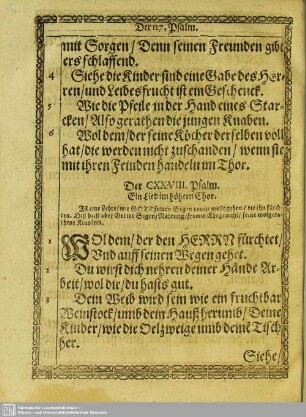 Der 127. Psalm.
mit Sorgen / Denn seinen Freunden gibt
ers schlaffend.
4 Siehe die Kinder sind eine Gabe des Her-
ren / und Leibesfrucht ist ein Geschenck.
5 Wie die Pfeile in der Hand eines Star-
cken / Also gerathen die jungen Knaben.
6 Wol dem / der seine Köcher derselben voll
hat / die werden nicht zuschanden / wenn sie
mit ihren Feinden handeln im Thor.
Der CXXVIII. Psalm.
Ein Lied im höhern Chor.
Ist eine Lehre / wie GOtt seinen Segen
1 WOl dem / der den HERRN fürchtet /
Und auff seinen Wegen gehet.
2 Du wirst dich nehren deiner Hände Ar-
beit / wol dir / du hasts gut.
3 Dein Weib wird sein wie ein fruchtbar
Weinstock / umb dein Hauß herumb / Deine
Kinder / wie die Oelzweige umb deinē Tisch
her.
Siehe /